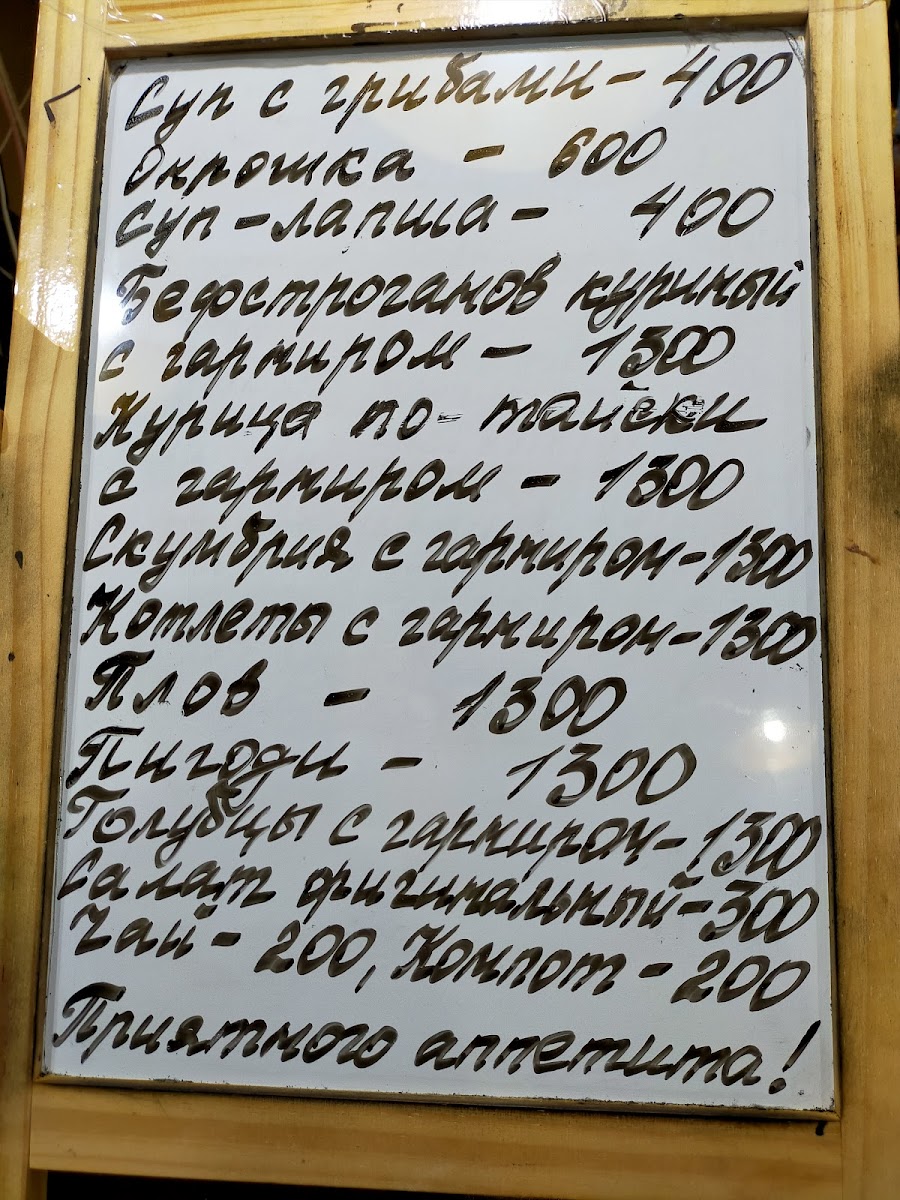 Суп с грибами - 400
Окрошка - 600
Суп-лапша - 400
Бефстроганов куриный
с гарниром - 1300
Курица по-тайски
с гарниром - 1300
Скумбрия с гарниром-1300
Котлеты с гарниром-1300
Плов - 1300
Пигоди - 1300
Голубцы с гарниром-1300
Салат оригинальный-300
Чай - 200, Компот - 200
Приятного аппетита!